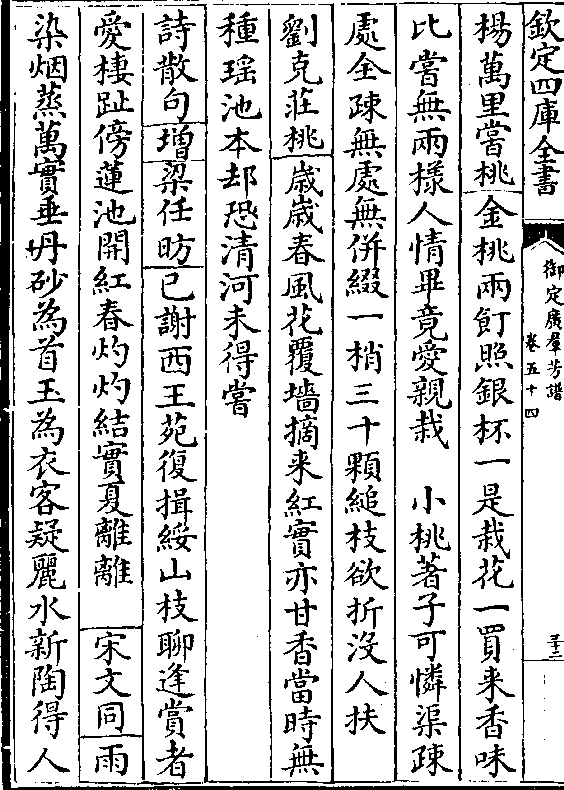 欽定四庫全書
御定廣羣芳譜
卷五十四
三十二
楊萬里嘗桃金桃兩飣照銀杯一是栽花一買来香味
比嘗無兩様人情畢竟愛親栽　小桃著子可憐渠踈
處全踈無處無併綴一梢三十顆縋枝欲折沒人扶
劉克莊桃歳歳春風花覆墻摘来紅實亦甘香當時無
種瑶池本却恐清河未得嘗
詩散句增梁任昉已謝西王苑復揖綏山枝聊逢賞者
愛棲趾傍蓮池開紅春灼灼結實夏離離　宋文同雨
染烟蒸萬實垂丹砂為首玉為衣客疑麗水新陶得人